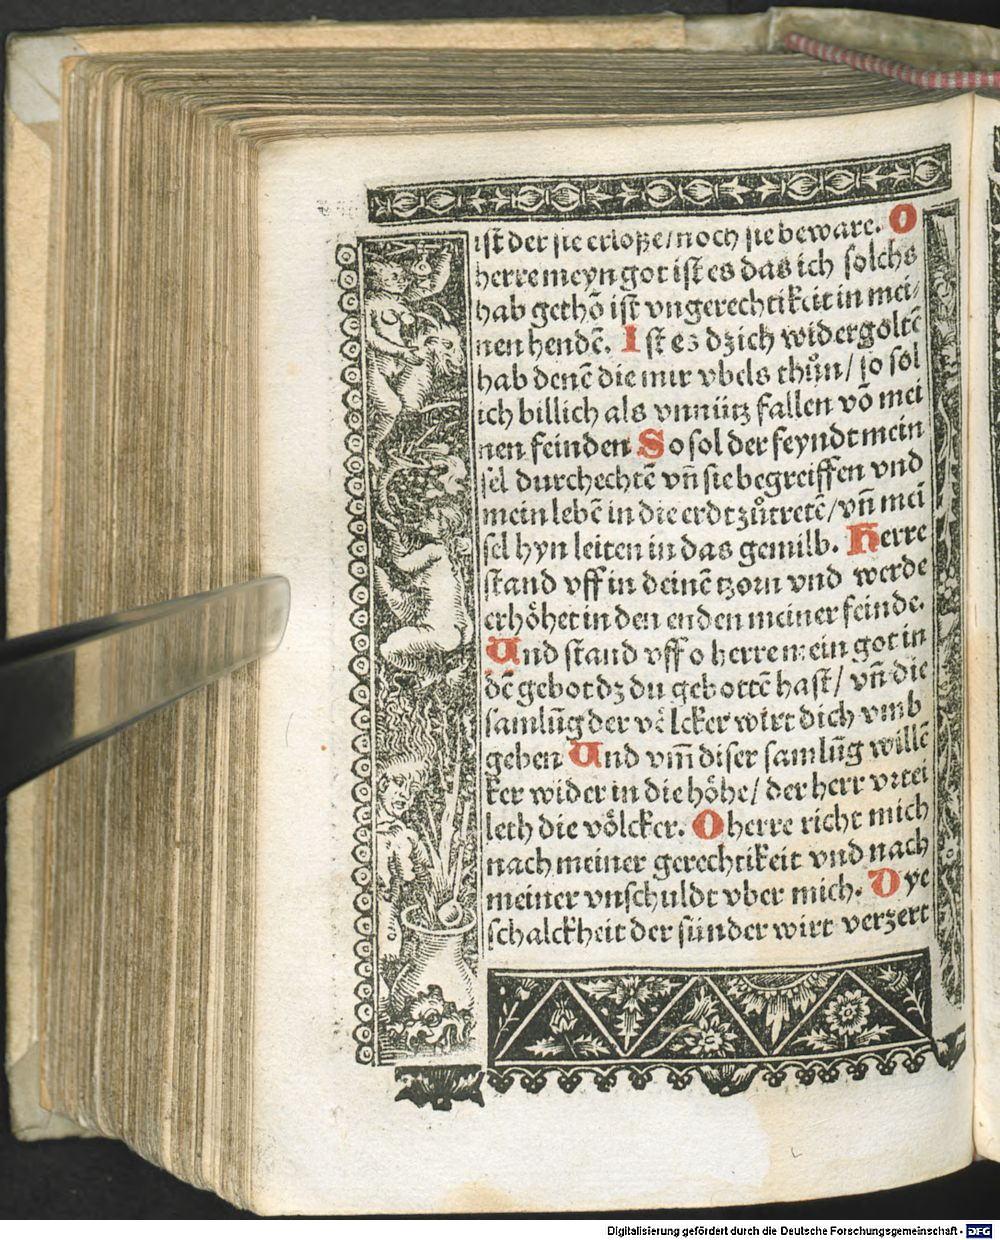 ist der sie erloße/noch sie beware. O
herre meyn got ist es das ich solchs
hab gethō ist vngerechtikeit in mei⸗
nen hendē. Ist es dz ich widergoltē
hab denē die mir vbels thůn/ so sol
ich billich als vnnütz fallen vō mei
nen feinden So sol der feyndt mein
sel durchechtē vn̄ sie begreiffen vnd
mein lebē in die erdt zůtretē/vn̄ mei
sel hyn leiten in das gemilb. Herre
stand vff in deinē tzorn vnd werde
erhöhet in den enden meiner feinde.
Und stand vff o herre mein got in
dē gebot dz du gebottē hast/ vn̄ die
samlūg der völcker wirt dich vmb
geben Und vm̄ diser samlūg willē
ker wider in die höhe/ der herr vrtei
leth die völcker. O herre richt mich
nach meiner gerechtikeit vnd nach
meiner vnschuldt vber mich. Dye
schalckheit der sünder wirt verzert
Digitalisierung gefördert durch die Deutsche Forschungsgemeinschaft - DFG